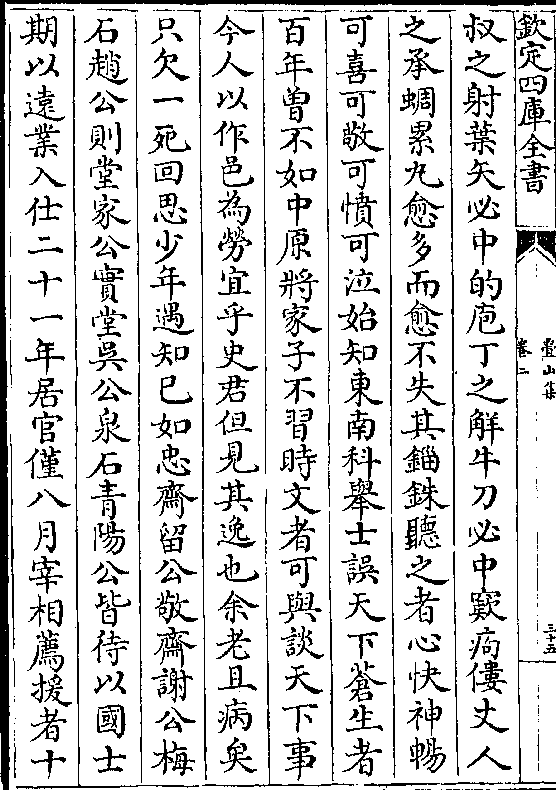 欽定四庫全書
疊山集
卷二
三十五
叔之射葉矢必中的庖丁之解牛刀必中窾疴僂丈人
之承蜩累九愈多而愈不失其錙銖聽之者心快神暢
可喜可敬可憤可泣始知東南科舉士誤天下蒼生者
百年曽不如中原將家子不習時文者可與談天下事
今人以作邑為勞宜乎史君但見其逸也余老且病矣
只欠一死回思少年遇知已如忠齋留公敬齋謝公梅
石趙公則堂家公實堂吳公泉石青陽公皆待以國士
期以遠業入仕二十一年居官僅八月宰相薦援者十